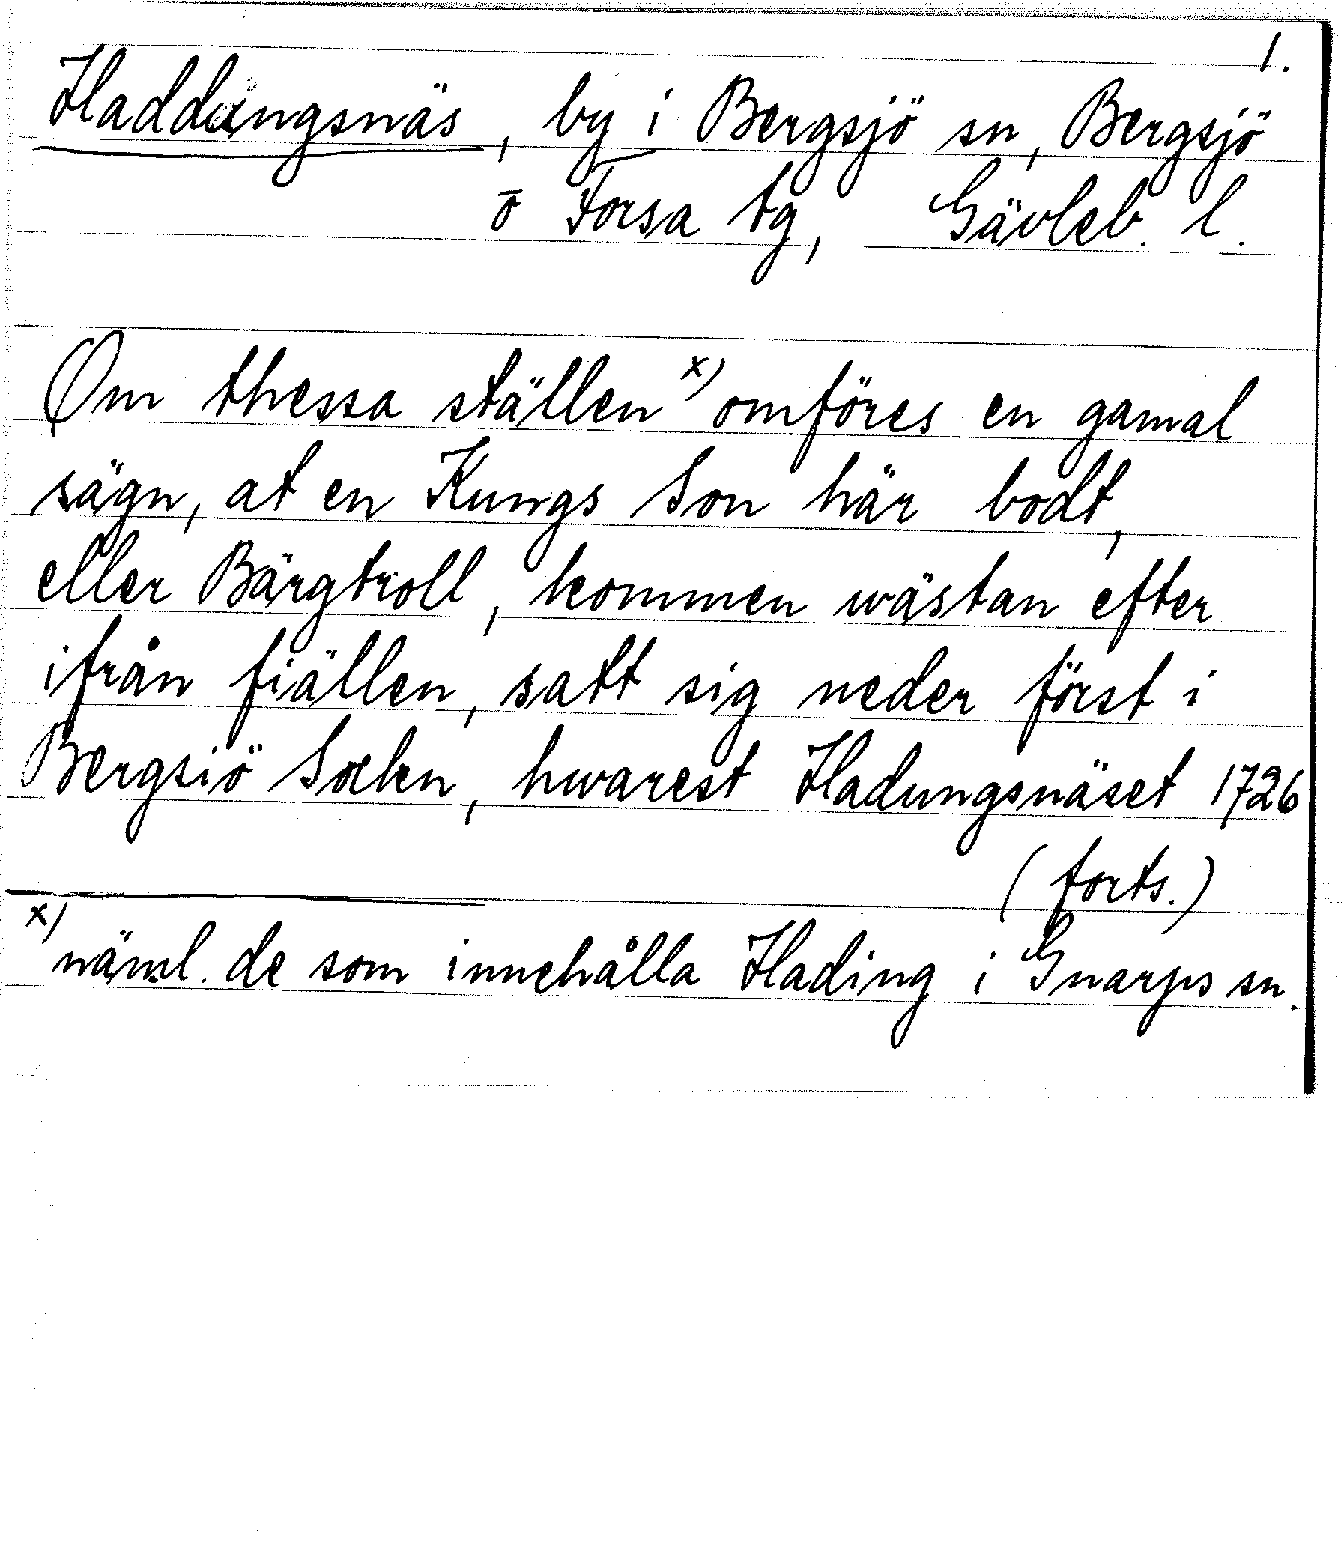 1.
Haddungsnäs, by i Bergsjö sn, Bergsjö
o Forsa tg, Gävleb. l.
Om thessa ställen x) omföres en gamal
sägn, at en Kungs Son här bodt,
eller Bärgtroll, kommen wästan efter
ifrån fiällen, satt sig neder först i
Bergsiö Sokn, hwarest Hadungsnäset 1726
(forts.)
x) näml. de som innehålla Hading i Gnarps sn.